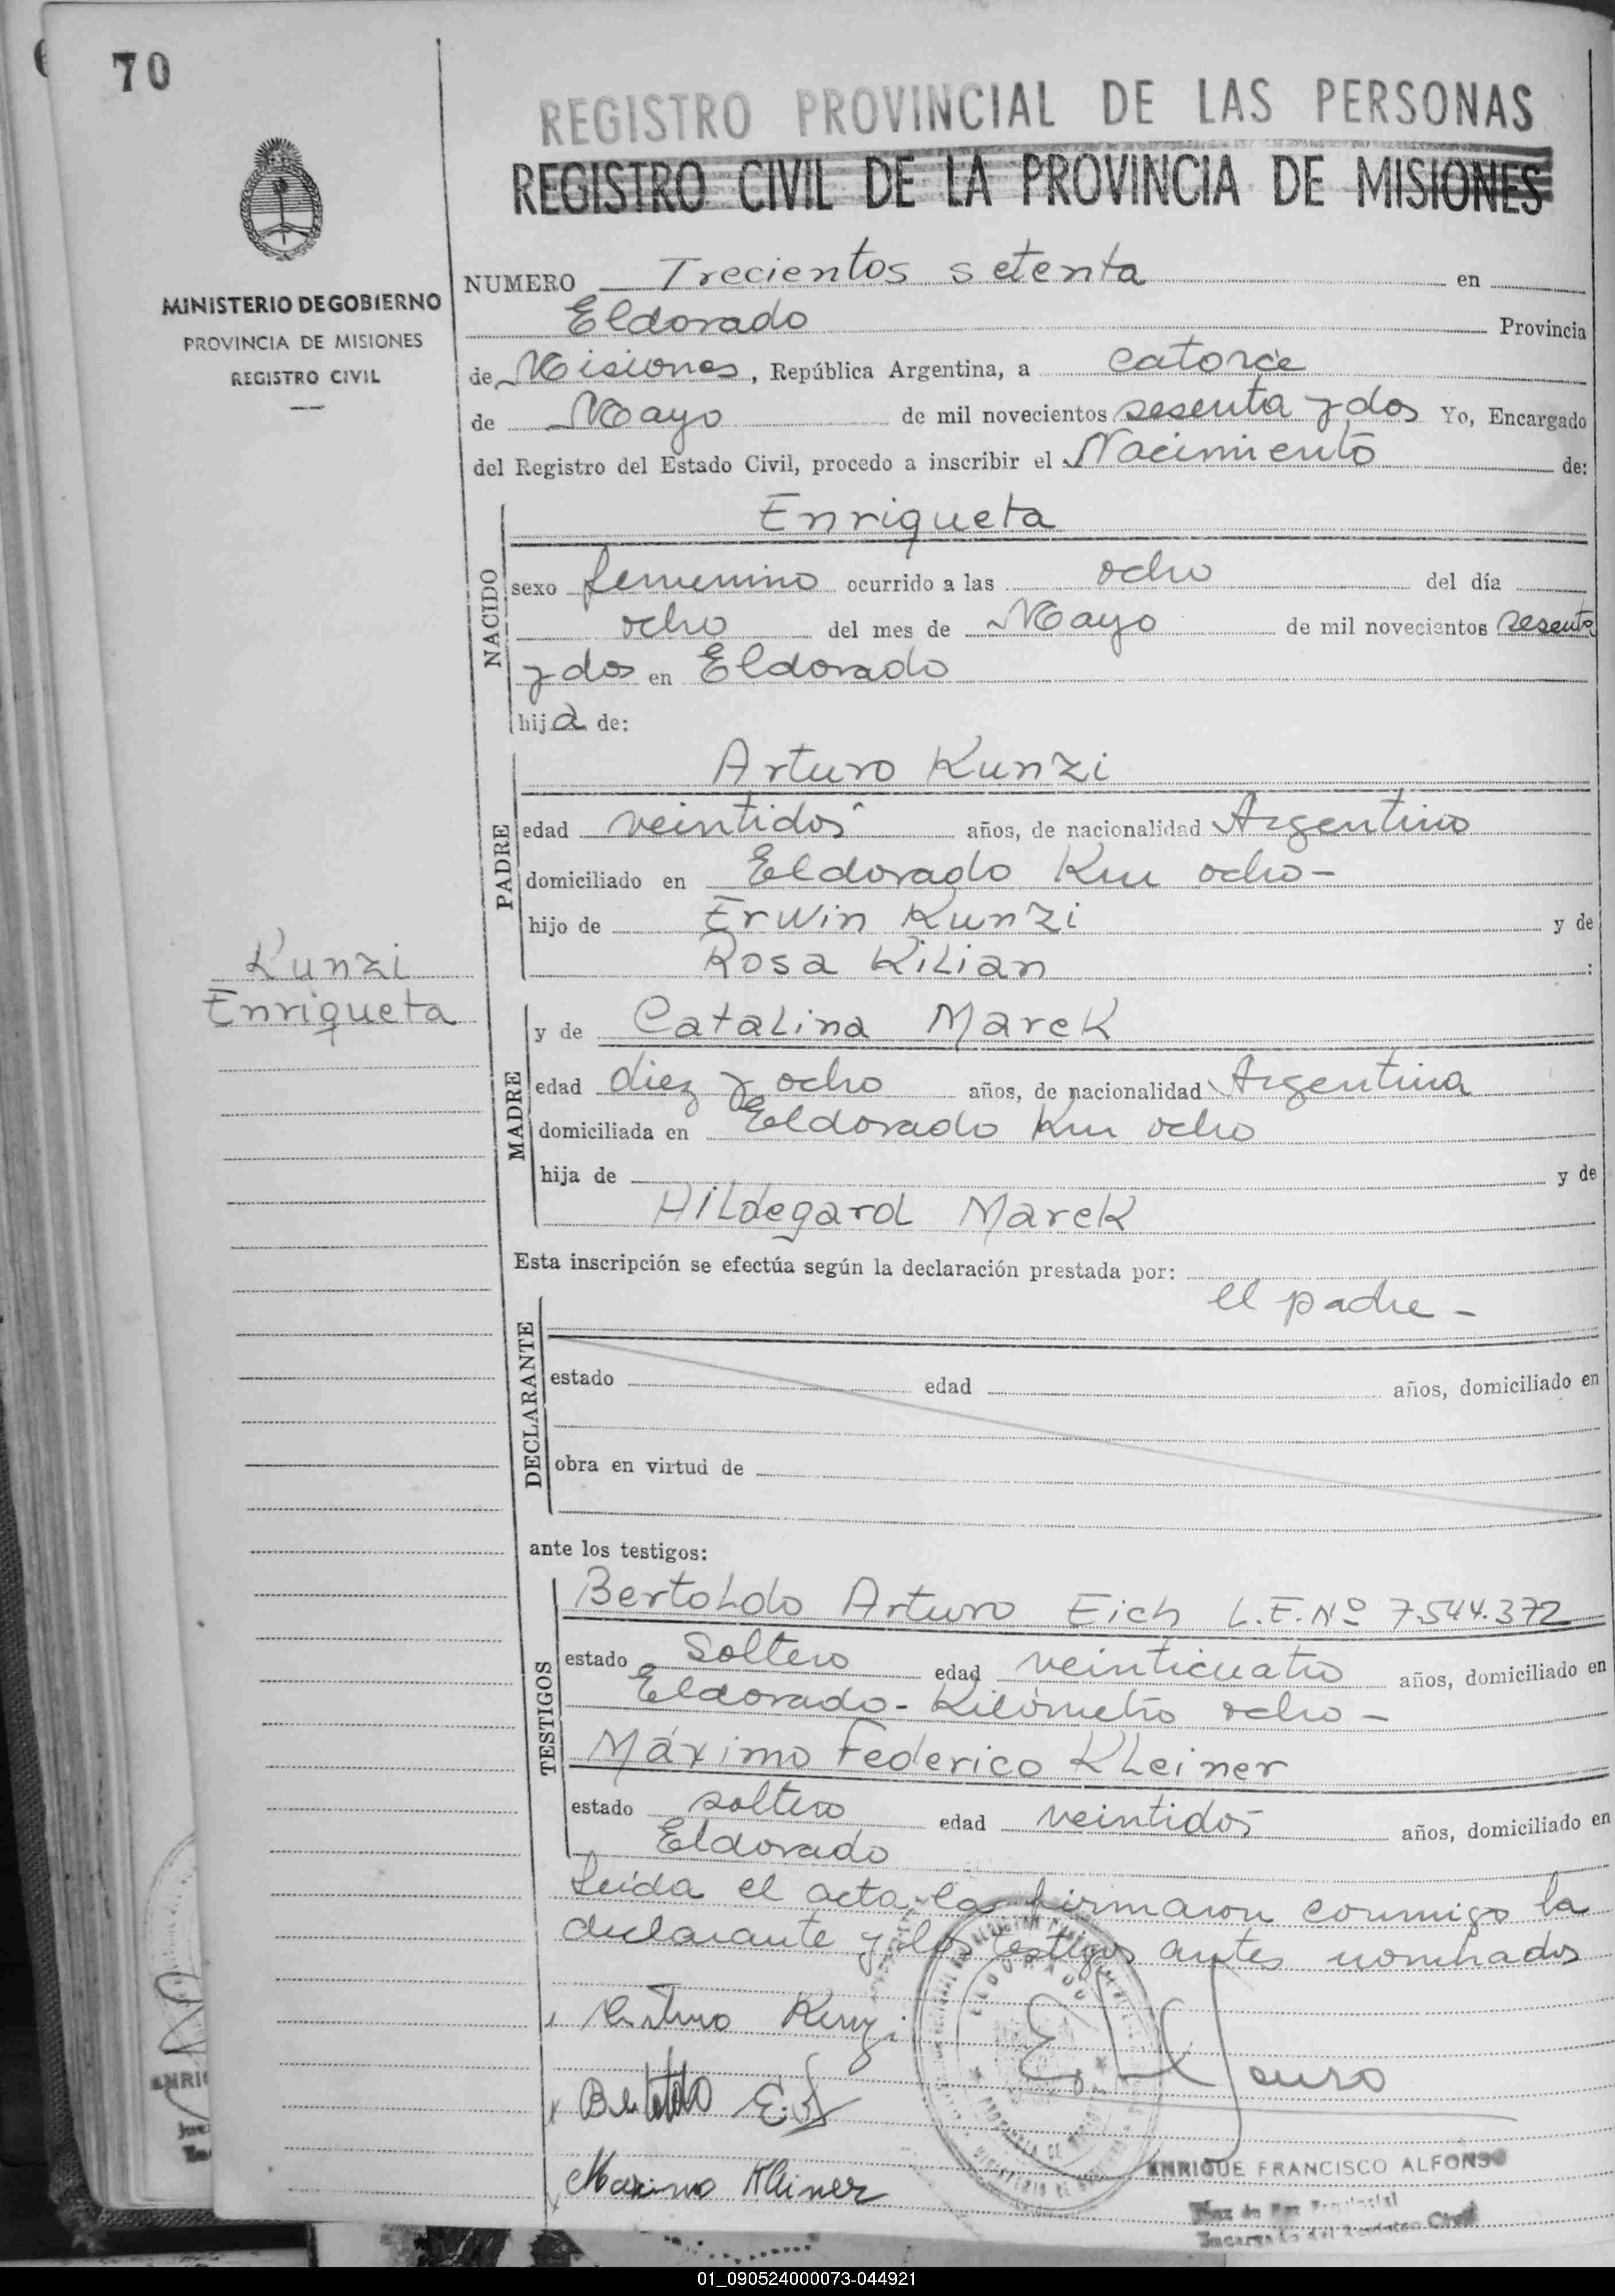 70
REGISTRO PROVINCIAL DE LAS PERSONAS
REGISTRO CIVIL DE LA PROVINCIA DE MISIONES
MINISTERIO DE GOBIERNO
PROVINCIA DE MISIONES
REGISTRO CIVIL
NUMERO Trecientos setenta en
Eldorado Provincia
de Misiones, República Argentina, a catorce
de Mayo de mil novecientos sesenta y dos Yo, Encargado
del Registro del Estado Civil, procedo a inscribir el Nacimiento de:
NACIDO
Enriqueta
sexo femenino ocurrido a las ocho del día
ocho del mes de Mayo de mil novecientos sesenta
y dos en Eldorado
hija de:
PADRE
Arturo Kunzi
edad veintidos años, de nacionalidad Argentino
domiciliado en Eldorado Km ocho-
hijo de Erwin Kunzi y de
Rosa Kilian :
Kunzi
Enriqueta
MADRE
y de Catalina Marek
edad diez y ocho años, de nacionalidad Argentina
domiciliada en Eldorado Km ocho
hija de y de
Hildegard Marek
Esta inscripción se efectúa según la declaración prestada por:
el padre -
DECLARANTE
estado edad años, domiciliado en
obra en virtud de
ante los testigos:
TESTIGOS
Bertoldo Arturo Eich L.E.Nº 7.544.372
estado Soltero edad veinticuatro años, domiciliado en
Eldorado - Kilómetro ocho -
Máximo Federico Kleiner
estado soltero edad veintidos años, domiciliado en
Eldorado
Leida el acta, la firmaron conmigo la
declarante y los testigos antes nombrados
Arturo Kunzi
Bertoldo E.
Maximo Kleiner
ENRIQUE FRANCISCO ALFONSO
Juez de Paz Provincial
Encargado del Registro Civil
01_090524000073-044921